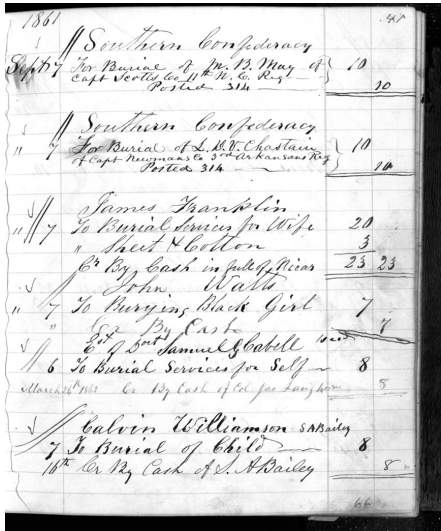 1861
Southern Confederacy
Sept 7 For Burial of M. B. May of 10
Capt Scotts Co 11th N. C. Reg
Posted 314 10
Southern Confederacy
" 7 For Burial of L. D. V. Chastain 10
of Capt Newmans Co 3rd Arkansans Reg
Posted 314 10
James Franklin
" 7 To Burial Services for Wife 20
" Sheet & Cotton 3
Cr By Cash in full of 23 23
John Watts
" 7 To Burying Black Girl 7
" Cr By Cash 7
Est of Samuel G Cabell
6 To Burial Services for Self 8
March 26th 1862 Cr By Cash of Col Jas Langhorne 8
Calvin Williamson S A Bailey
7 To Burial of Child 8
16th Cr By Cash of S. A Bailey 8
66